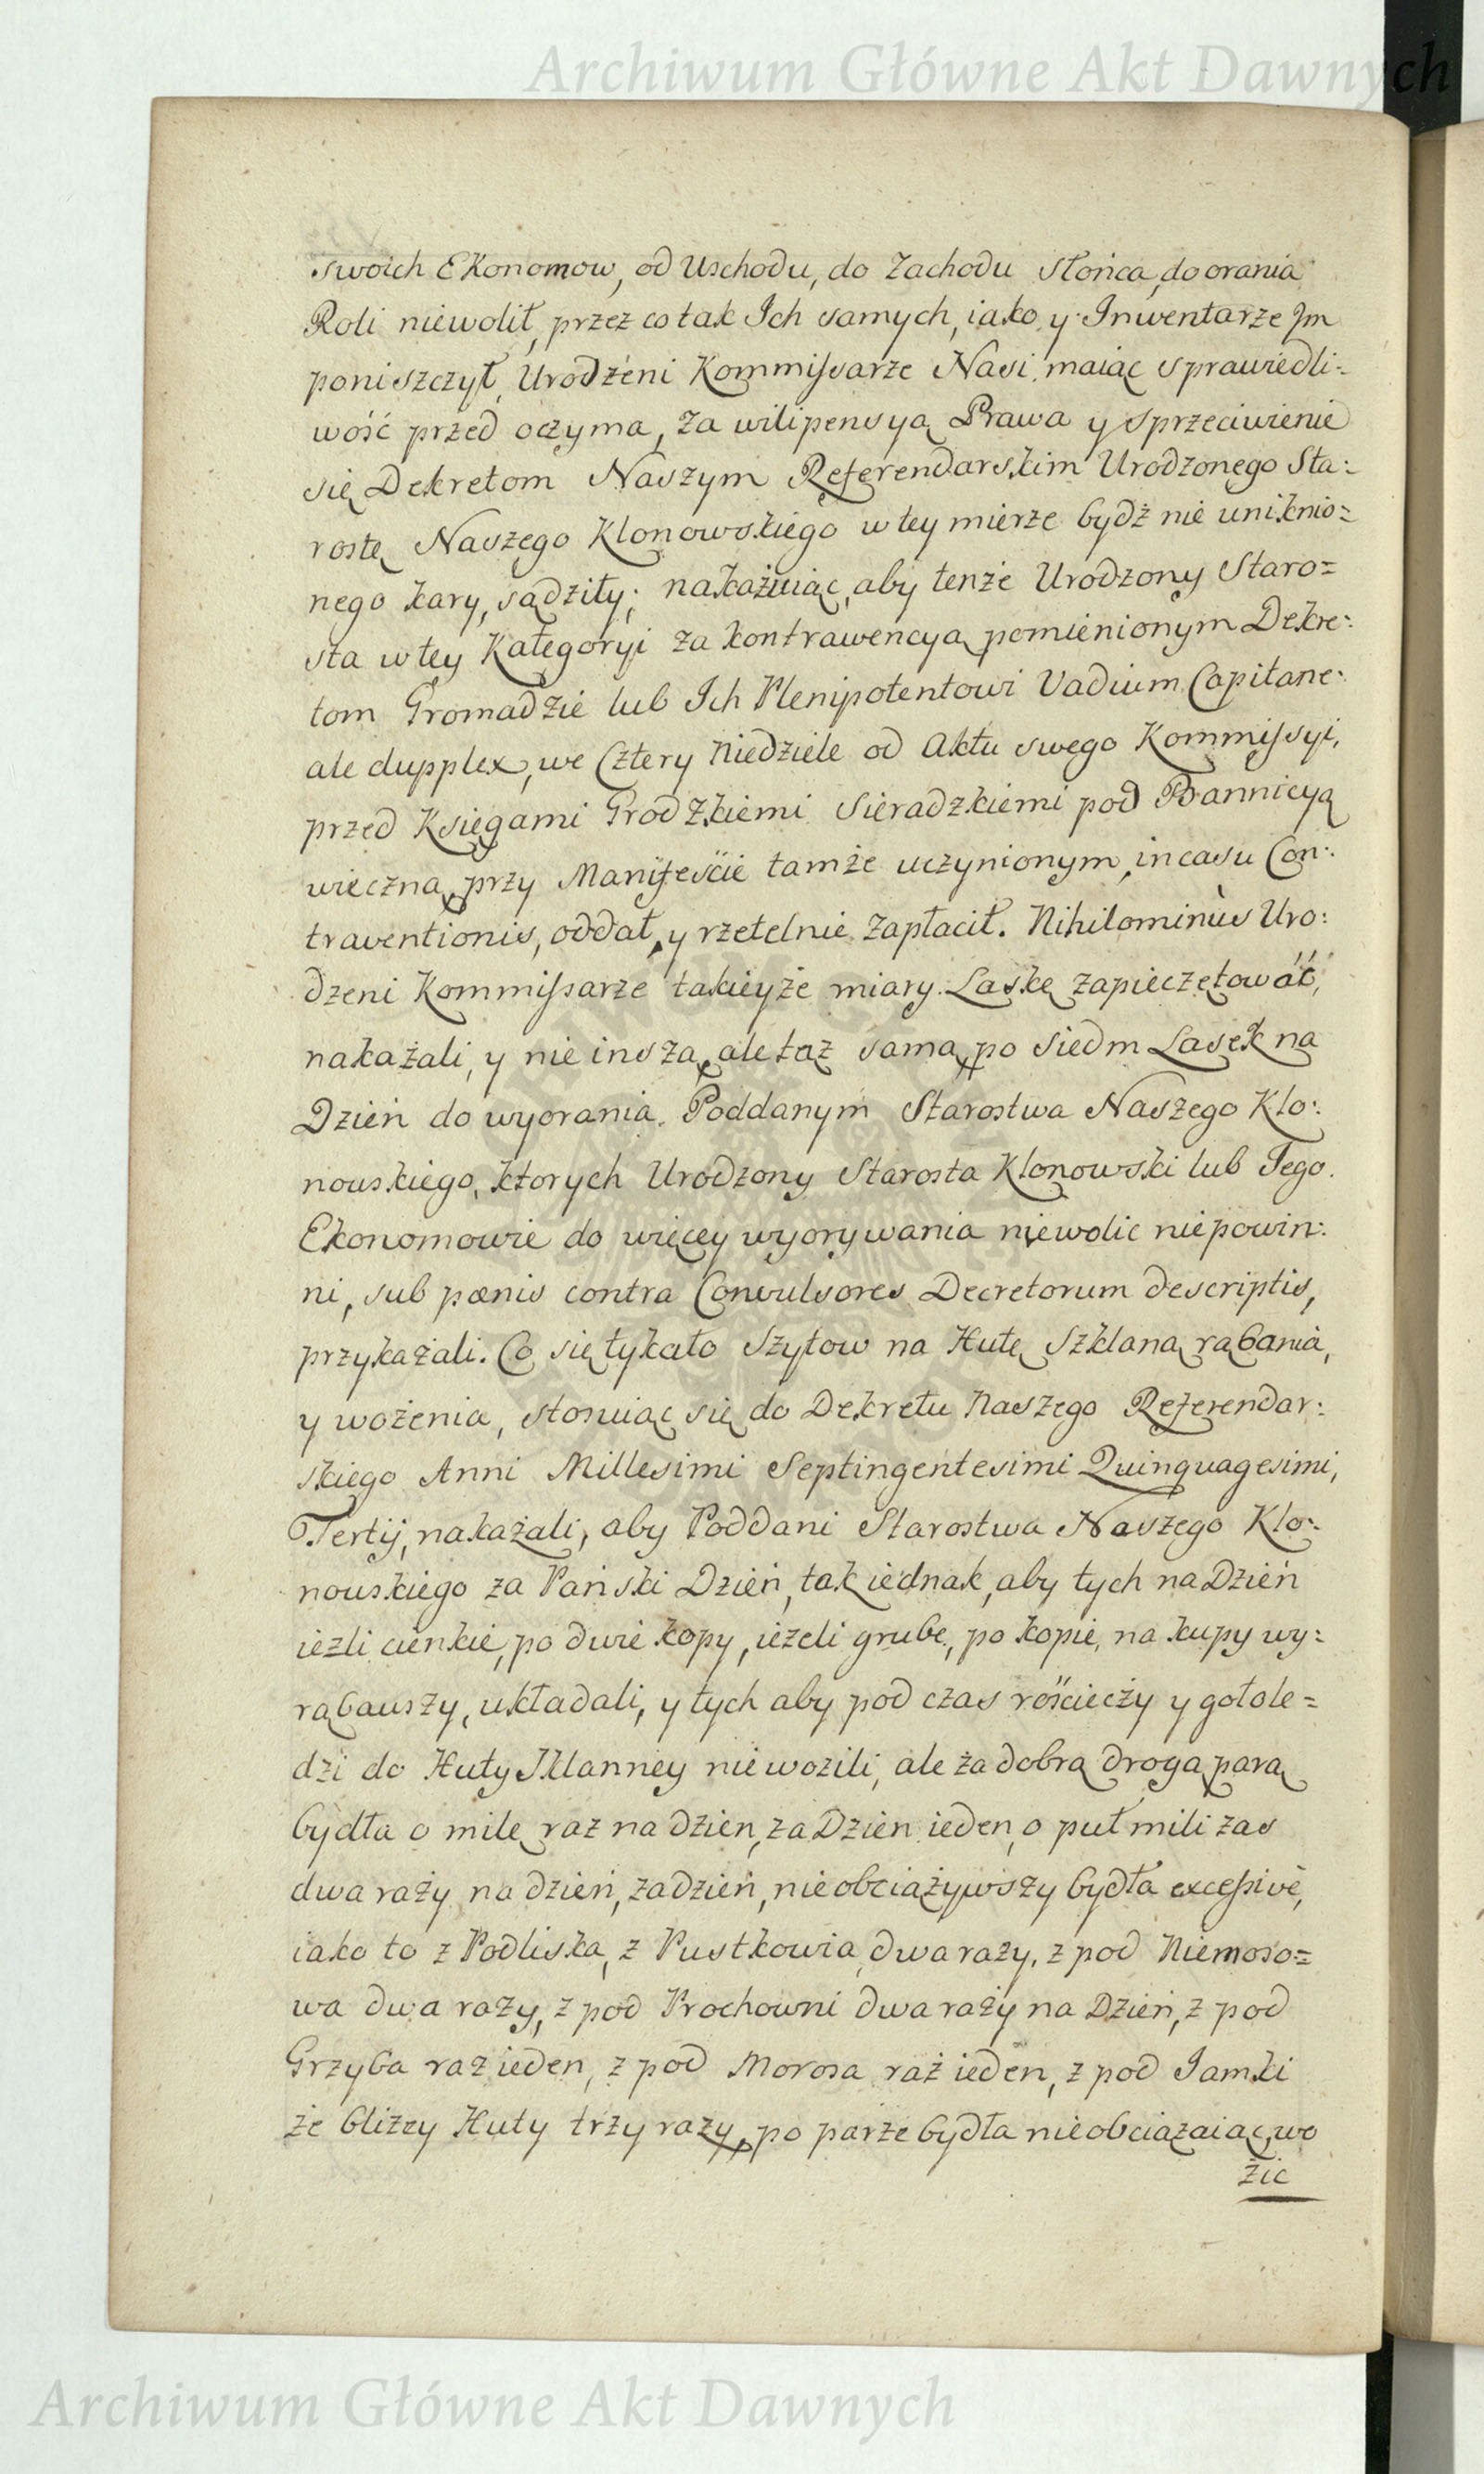 Archiwum Główne Akt Dawnych
swoich Ekonomow, od Uschodu, do Zachodu Słońca, do orania
Roli niewolił, przez co tak Ich samych, iako y Inwentarze Im
poniszczył, Urodzeni Kommissarze Nasi maiąc sprawiedli:
wość przed oczyma, za wilipensyą Prawa y sprzeciwienie
się Dekretom Naszym Referendarskim Urodzonego Sta:
rostę Naszego Klonowskiego w tey mierze bydź nie uniknio=
nego kary, sądziły; nakazuiąc, aby tenże Urodzony Staro=
sta w tey Kategoryi za kontrawencyą pomienionym Dekre:
tom Gromadzie lub Ich Plenipotentowi Vadium Capitane:
ale dupplex, we Cztery Niedziele od Aktu swego Kommissyi,
przed Księgami Grodzkiemi Sieradzkiemi pod Bannicyą
wieczną, przy Manifeście tamże uczynionym, in casu Con:
traventionis, oddał, y rzetelnie zapłacił. Nihilominùs Uro:
dzeni Kommissarze takieyże miary Laskę zapieczętować,
nakazali, y nie inszą, ale taż samą, po Siedm Lasek na
Dzień do wyorania. Poddanym Starostwa Naszego Klo:
nowskiego, ktorych Urodzony Starosta Klonowski lub Jego
Ekonomowie do więcey wyorywania niewolic niepowin:
ni, sub pœnis contra Convulsores Decretorum descriptis,
przykazali. Co się tykało Szytow na Hutę Szklaną rąbania,
y wożenia, stosuiąc się do Dekretu Naszego Referendar:
skiego Anni Millesimi Septingentesimi Quinquagesimi,
Tertij, nakazali, aby Poddani Starostwa Naszego Klo:
nowskiego za Pański Dzień, tak iednak, aby tych na Dzień
ieżli cienkie, po dwie kopy, ieżeli grube, po kopie, na kupy wy:
rąbawszy, układali, y tych aby pod czas rościeczy y gołole=
dzi do Huty Sklanney nie wozili, ale za dobrą drogą parą
bydła o milę raz na dzien, za Dzien ieden, o puł mili zas
dwa razy na dzień, za dzień, nieobciążywszy bydła excessivè,
iako to z Podliska, z Pustkowia dwa razy, z pod Niemoio:=
wa dwa razy, z pod Prochowni dwa razy na Dzień, z pod
Grzyba raz ieden, z pod Morosa raz ieden, z pod Jamki
że bliżey Huty trzy razy, po parze bydła nieobciążaiąc, wo
zic
Archiwum Główne Akt Dawnych